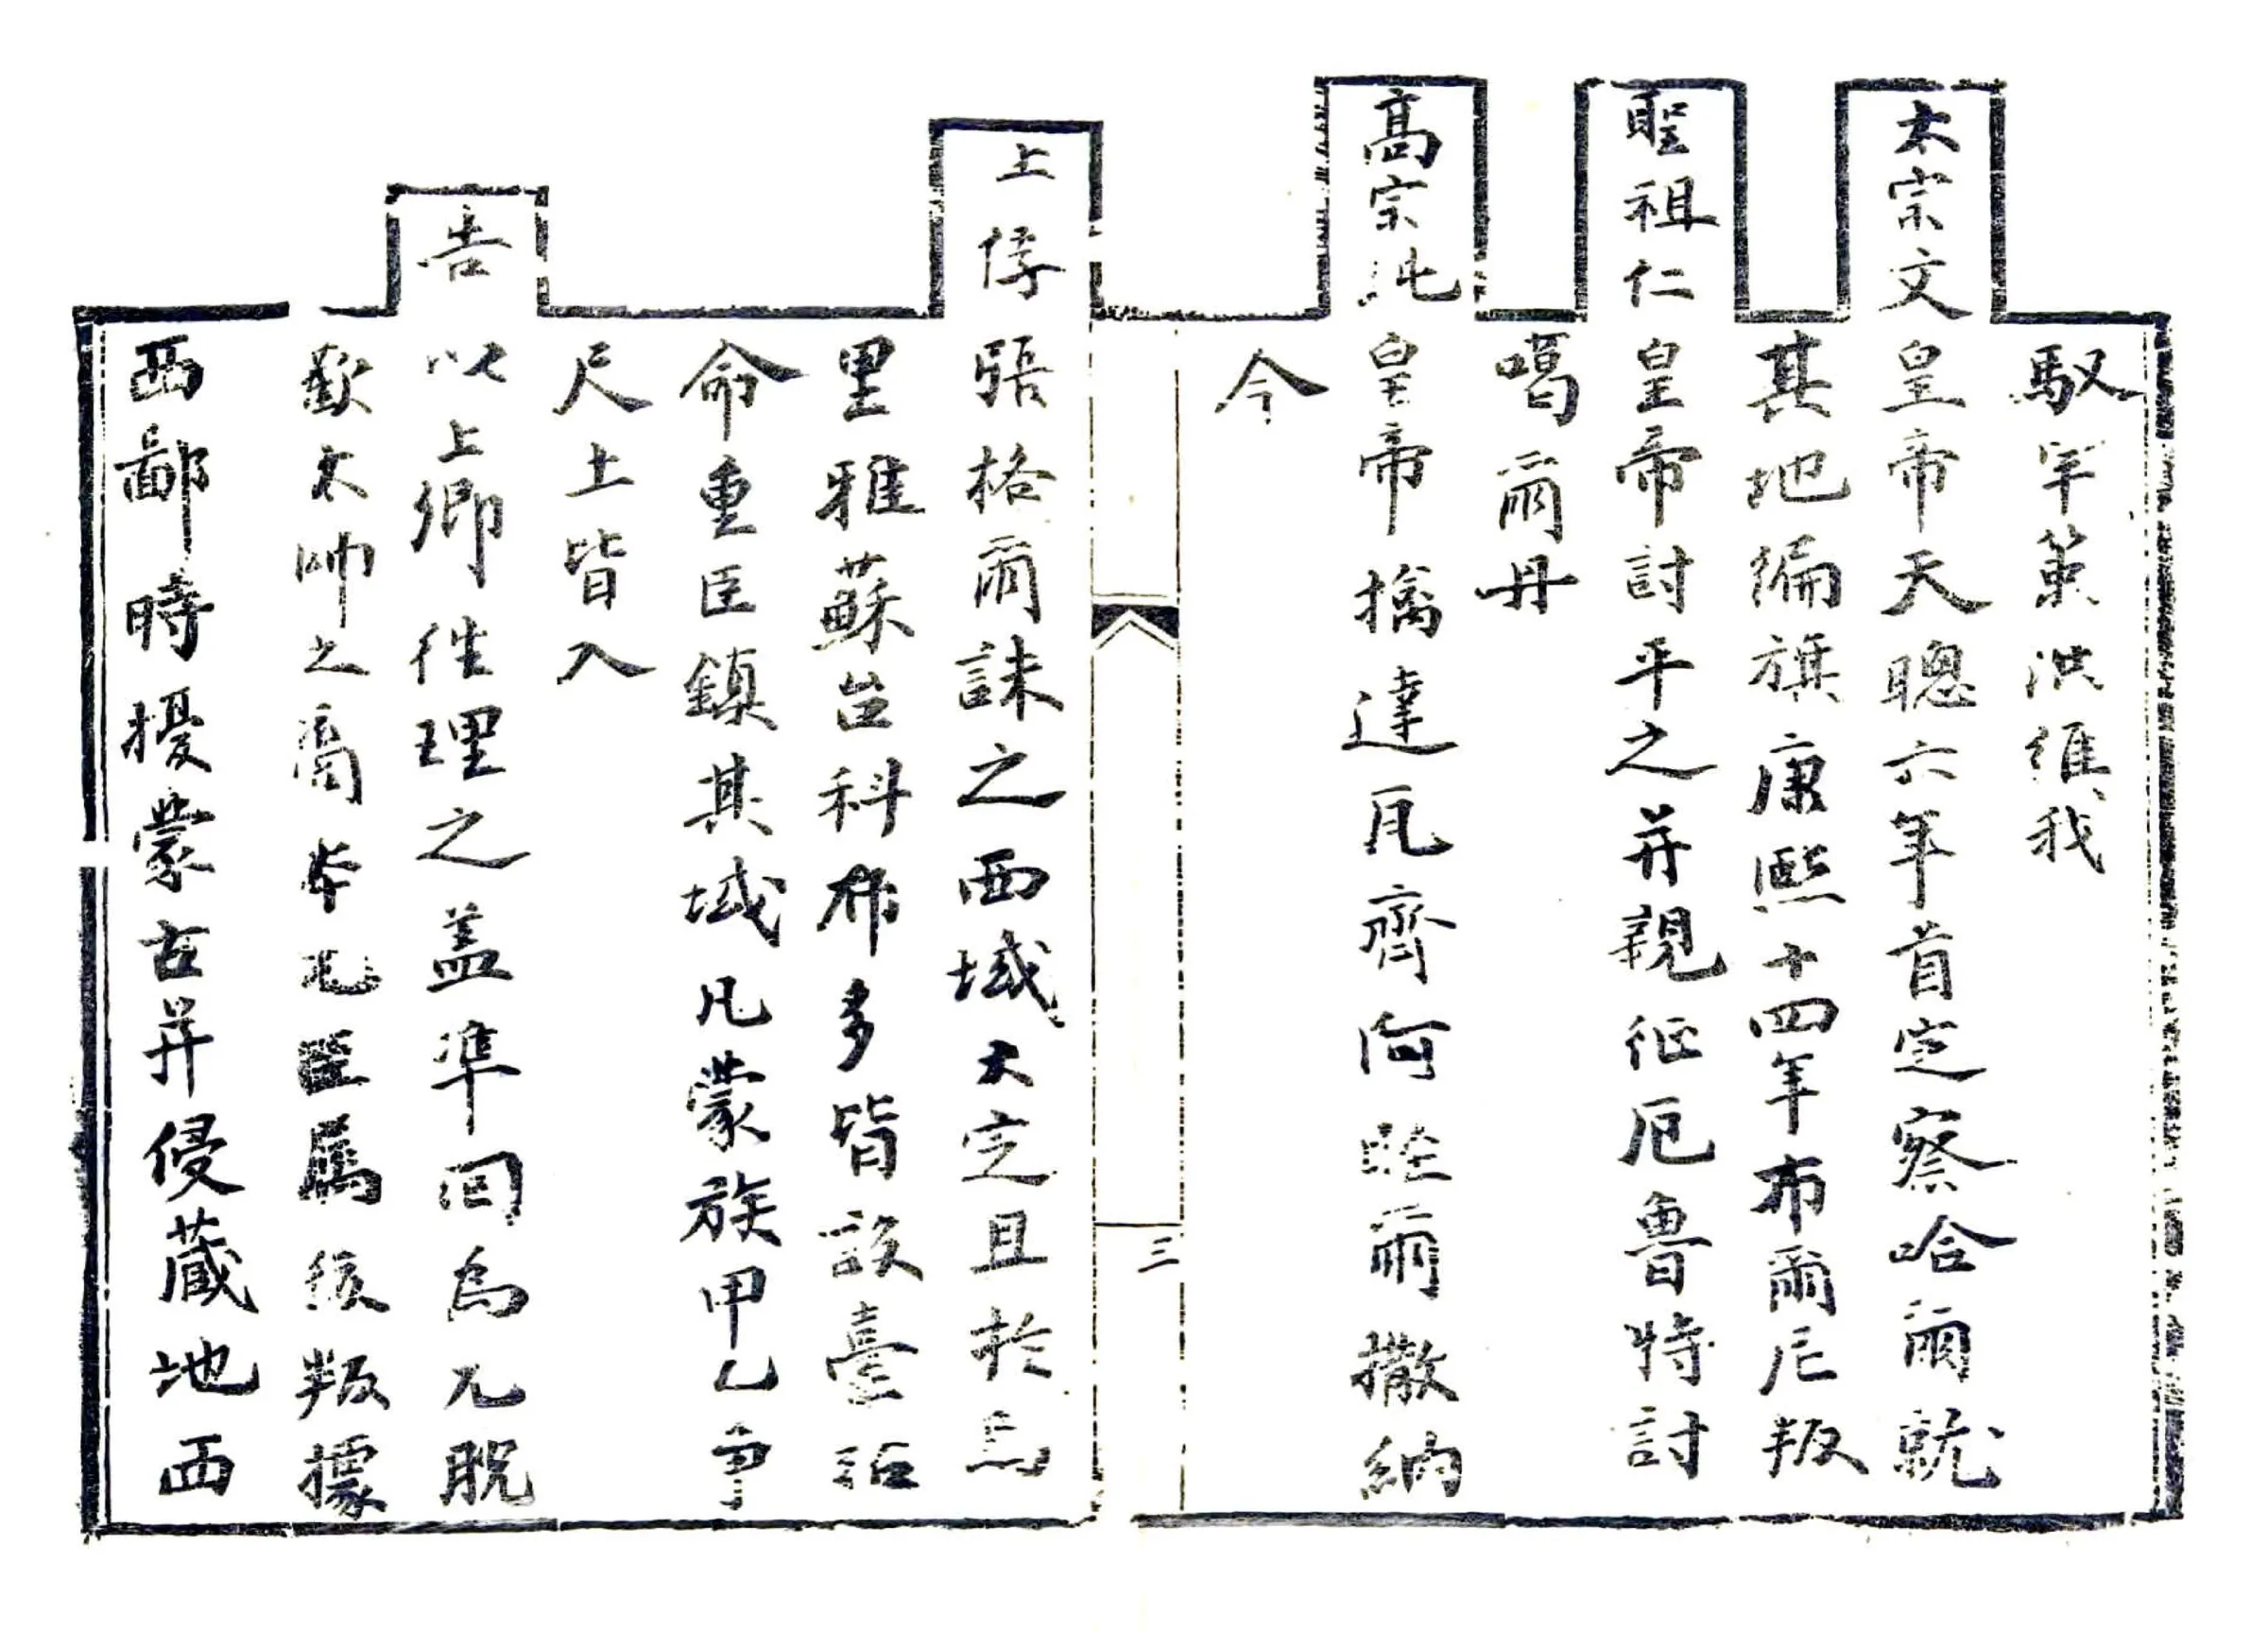 馭罕策洪維我
太宗文皇帝天聰六年首定察哈爾就
其地編旗康熙十四年布爾尼叛
聖祖仁皇帝討平之并親征厄魯特討
噶爾丹
高宗純皇帝擒達瓦齊阿睦爾撒納
今
三
上俘張格爾誅之西域大定且於烏
里雅蘇台科布多皆設臺站
命重臣鎮其域凡蒙族甲乙爭
尺土皆入
告以上卿往理之蓋準回為元脫
歡太師之裔本屬後叛據
西鄙時擾蒙古并侵藏地西